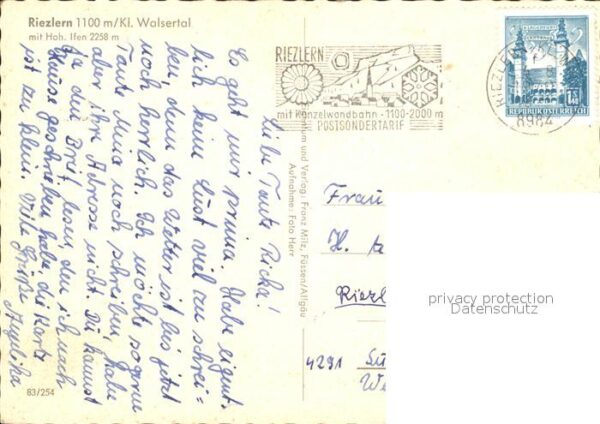 Riezlern 1100 m/Kl. Walsertal
mit Hoh. Ifen 2258 m
RIEZLERN
mit Kanzelwandbahn - 1100-2000 m
POSTSONDERTARIF
RIEZLERN
8984
REPUBLIK ÖSTERREICH
Liebe Tante Ricka!
Es geht mir prima. Habe eigent-
lich kein Lust viel zu schrei-
ben, denn das Wetter ist bis jetzt
noch herrlich. Ich möchte sogar
Tante Mia noch schreiben, habe
aber ihre Adresse nicht. Du kannst
ja den Brief lesen, den ich nach
Hause geschrieben habe, die Karte
ist zu klein. Viele Grüße
Angelika
und Verlag: Franz Milz, Füssen/Allgäu
Aufnahme: Foto Herr
Frau
H.
4291
83/254
privacy protection
Datenschutz